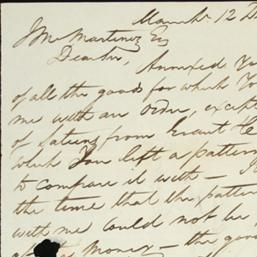 March 12
J M Martinez Esq
Dear Sir, Annexed
of all the goods for which
me with an order, except
of from
which You left a pattern
to compare it with —
the time that the patter
with me could not be
money — the goo